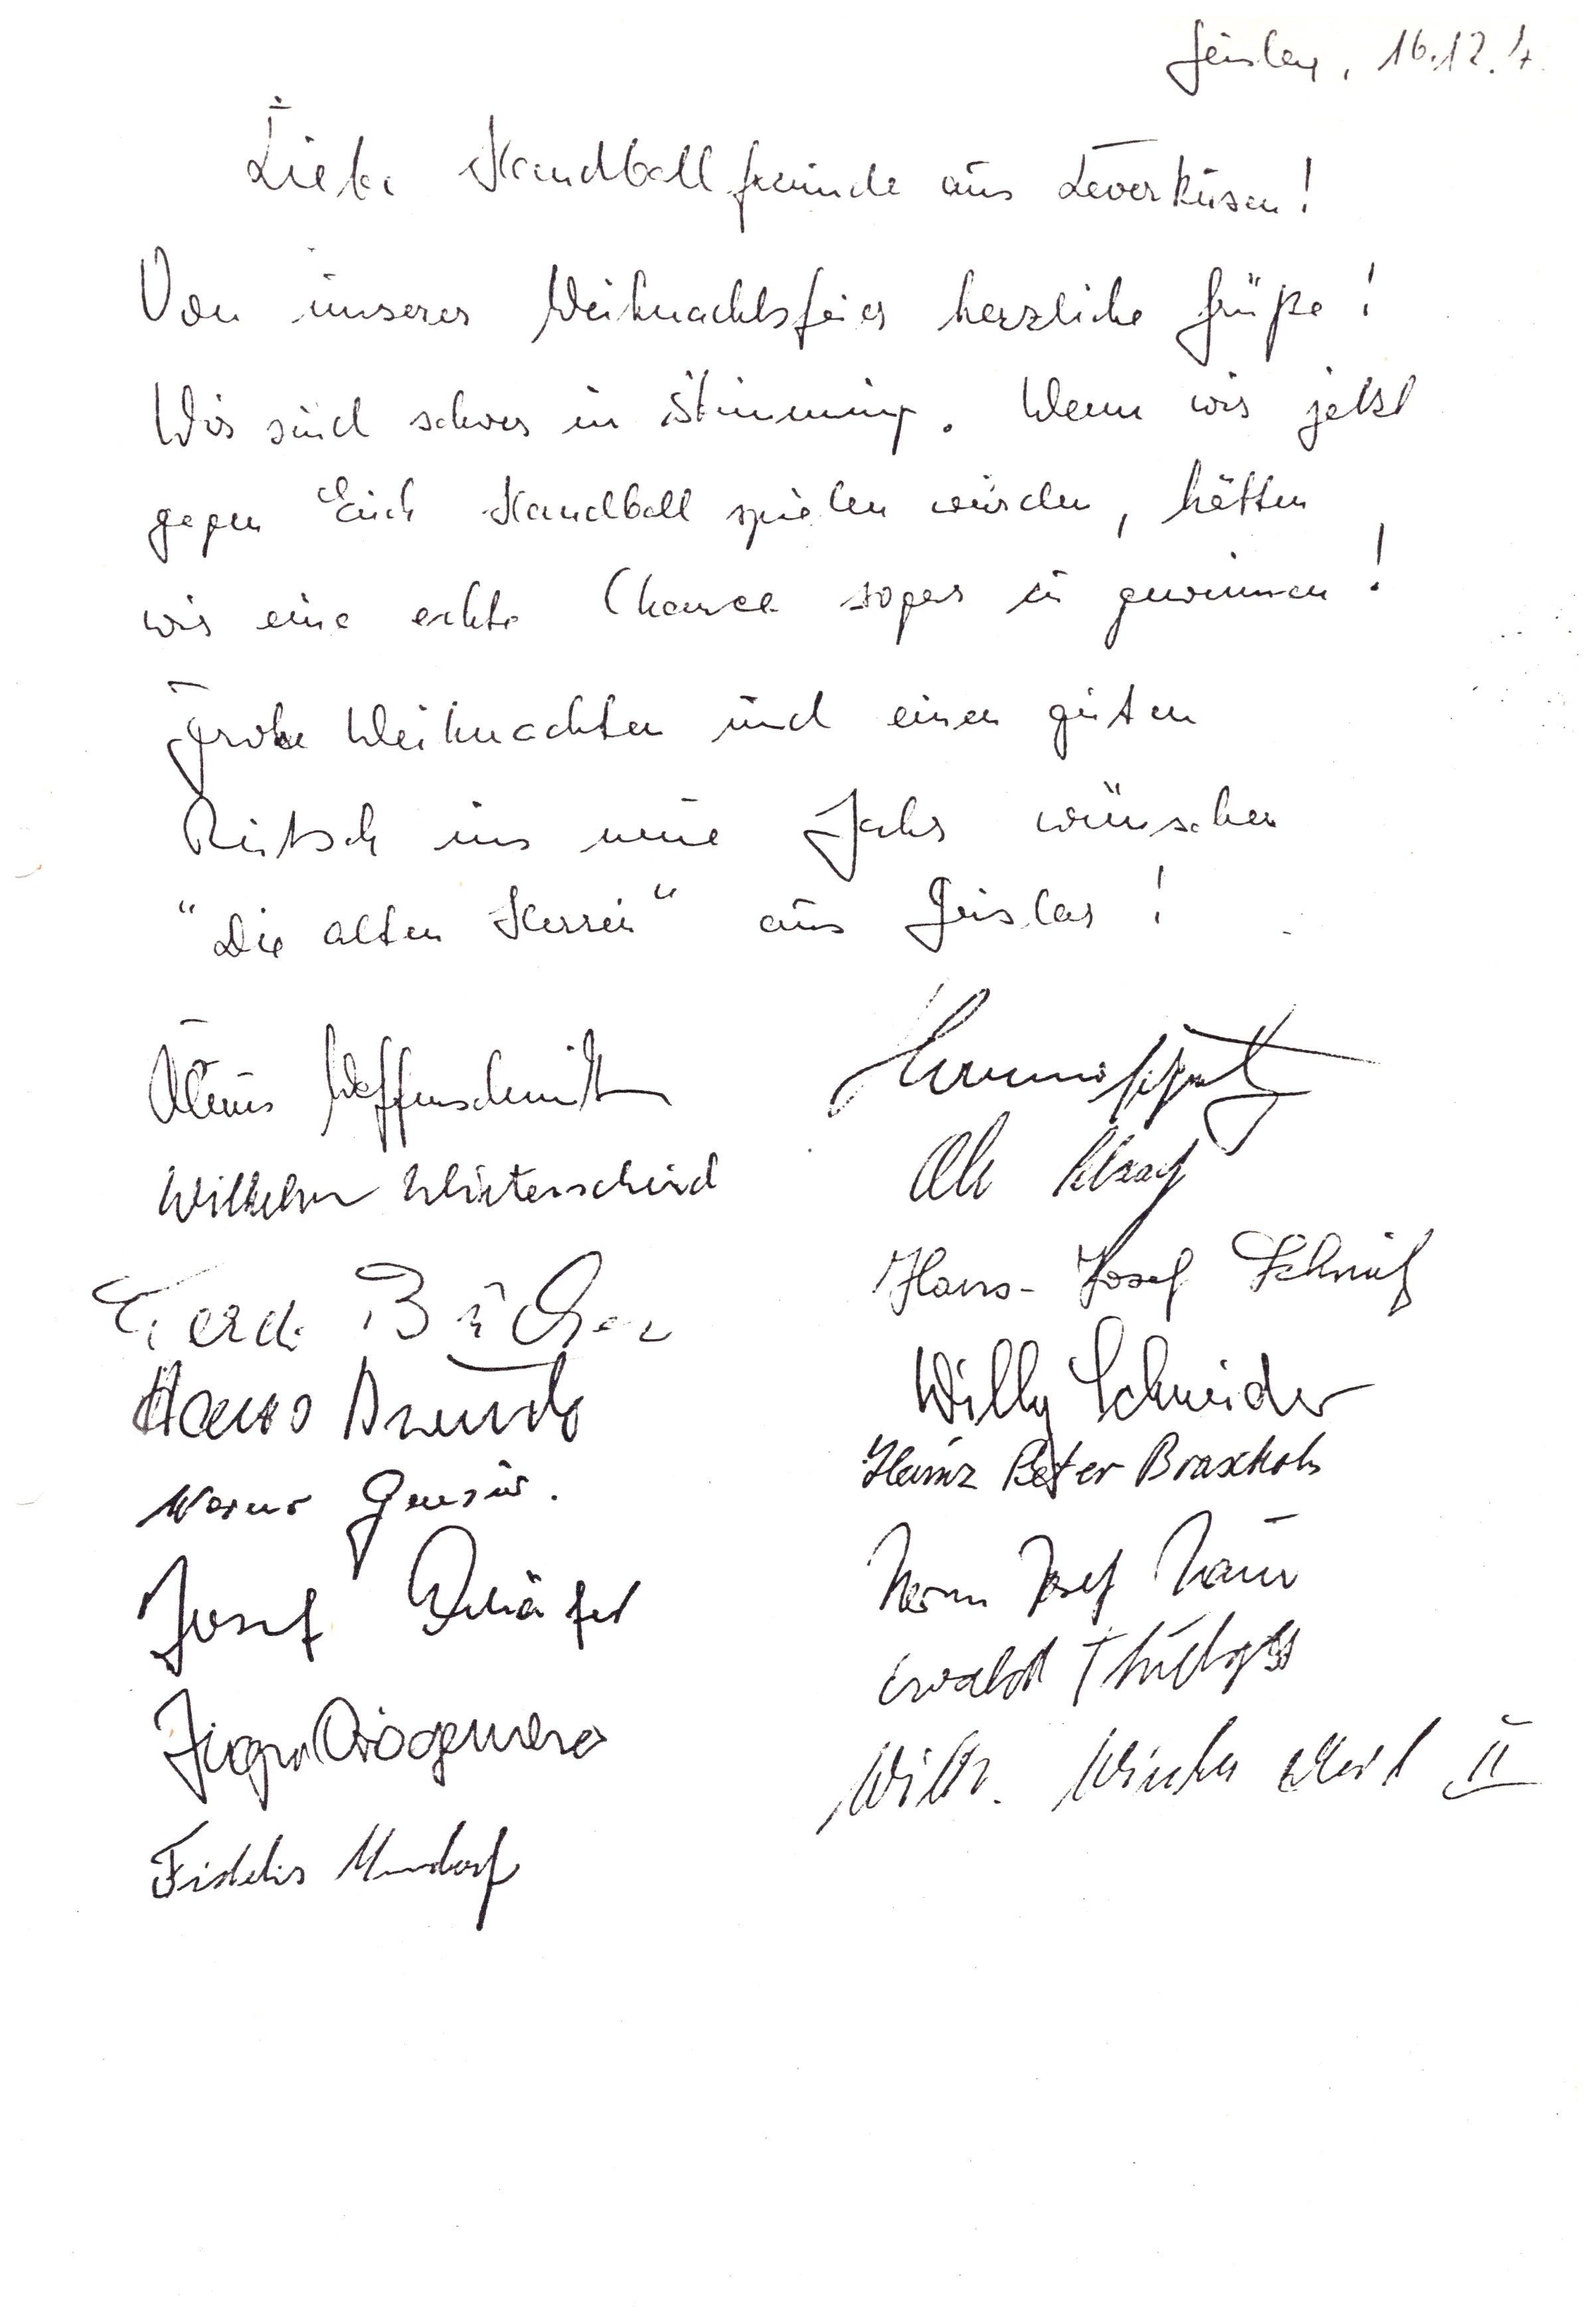 Geislar, 16.12.
Liebe Handballfreunde aus Leverkusen!
Von unserer Weihnachtsfeier herzliche Grüße!
Wir sind schwer in Stimmung. Wenn wir jetzt
gegen Euch Handball spielen würden, hätten
wir eine echte Chance sogar zu gewinnen!
Frohe Weihnachten und einen guten
Rutsch ins neue Jahr wünschen
"Die alten Herren" aus Geislar!
Klaus Waffenschmidt
Wilhelm Winterscheid
Ferdi Bücher
Hans Arendt
Werner
Josef Schäfer
Jürgen Brögemeier
Fidelis Mundorf
Hans-Josef Schmitz
Willy Schneider
Heinz Peter Braschoß
Herm Josef
Ewald
Wilh. Winterscheid II